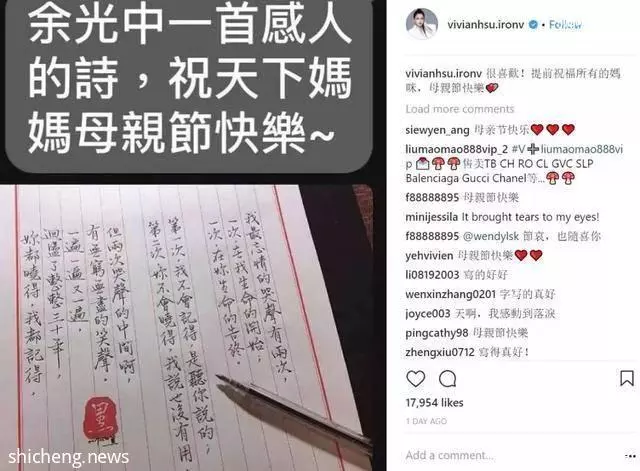 余光中一首感人
的詩，祝天下媽
媽母親節快樂~
我最忘情的哭聲有兩次，
一次，在我生命的開始，
一次，在妳生命的告終。
第一次，我不會記得，是聽你說的；
第二次，妳不會曉得，我說也沒有用，
但兩次哭聲的中間啊，
有無窮無盡的笑聲。
一遍一遍又一遍，
迴盪了整整三十年，
妳都曉得，我都記得。
shicheng.news
vivianhsu.ironv • Following
vivianhsu.ironv 很喜歡！提前祝福所有的媽
咪，母親節快樂💕
Load more comments
siewyen_ang 母亲节快乐❤️❤️❤️
liumaomao888vip_2 #V➕liumaomao888vi
p 📩🍄🍄售卖TB CH RO CL GVC SLP
Balenciaga Gucci Chanel等...🍄🍄
f88888895 母親節快樂
minijessila It brought tears to my eyes!
f88888895 @wendylsk 節哀，也隨喜你
yehvivien 母親節快樂❤️❤️
li08192003 寫的好好
wenxinzhang0201 字写的真好
joyce003 天啊，我感動到落淚
pingcathy98 母親節快樂
zhengxiu0712 寫得真好！
17,954 likes
1 DAY AGO
Add a comment...